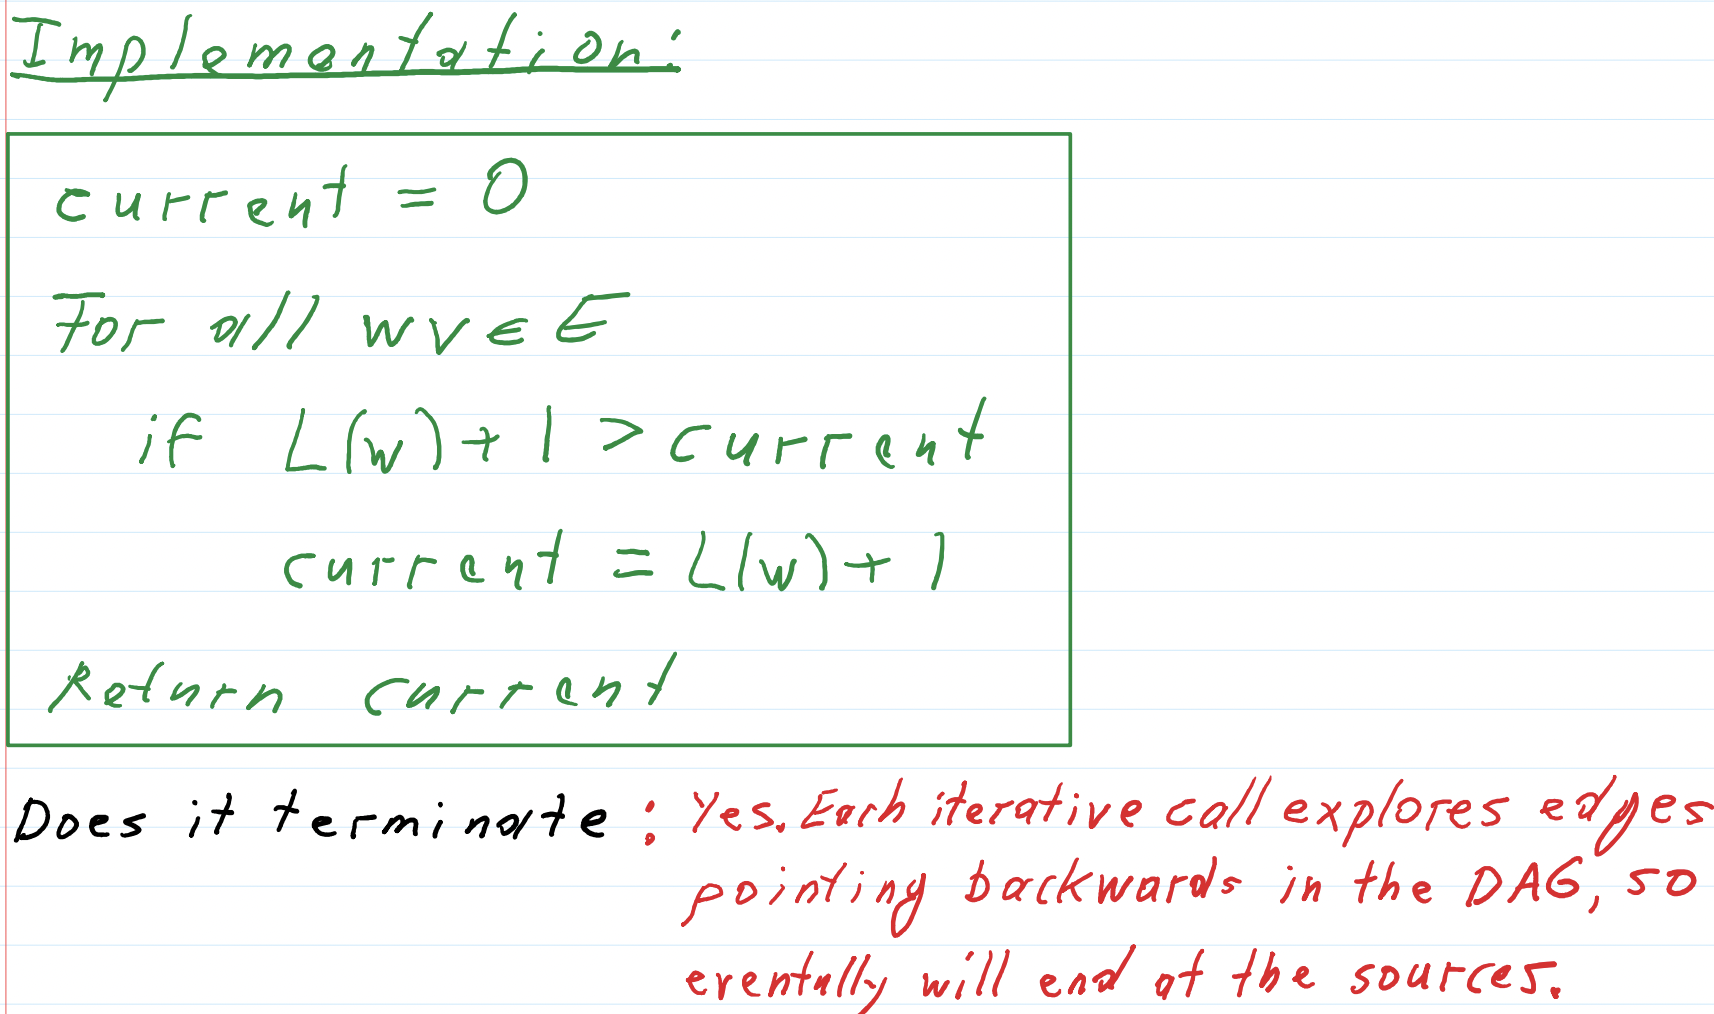 Implementation:
current = 0
For all wv ∈ E
if L(w) + 1 > current
current = L(w) + 1
Return current
Does it terminate : Yes. Each iterative call explores edges
pointing backwards in the DAG, so
eventully will end at the sources.